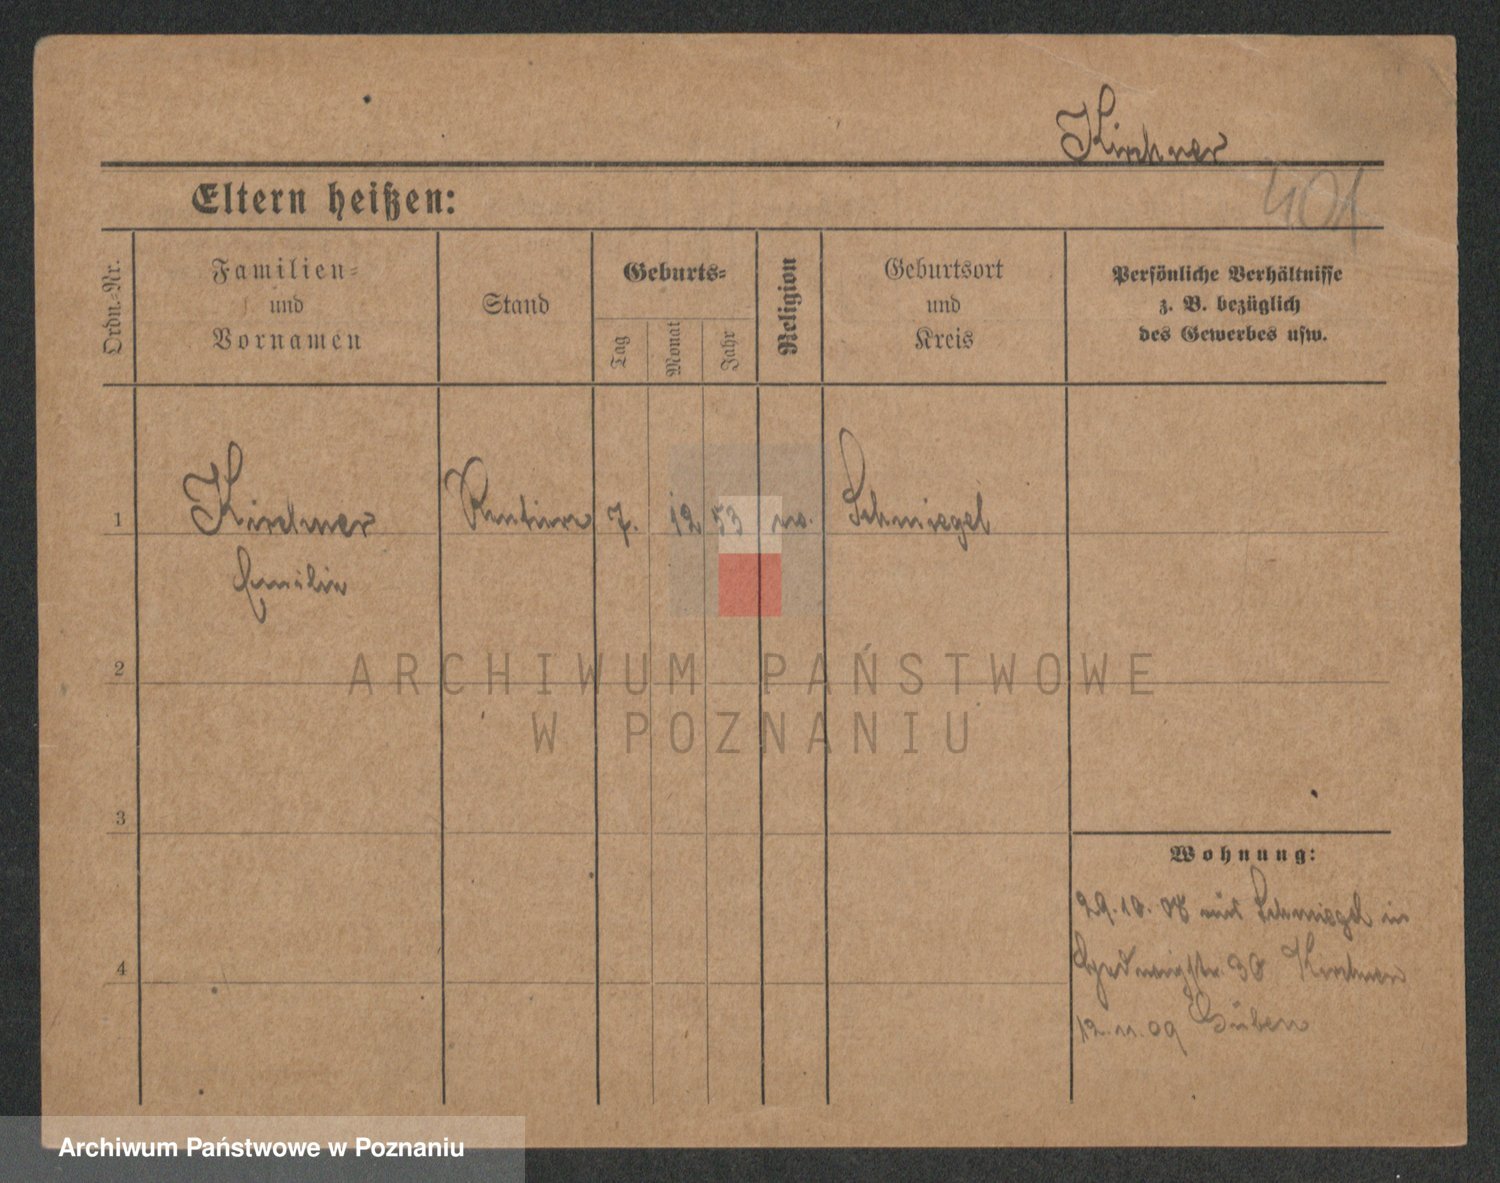 Kirchner
401
Eltern heißen:
Ordn.-Nr.
Familien-
und
Vornamen
Stand
Geburts-
Tag
Monat
Jahr
Religion
Geburtsort
und
Kreis
Persönliche Verhältnisse
z. B. bezüglich
des Gewerbes usw.
1 Kirchner Rentiere 7. 12 53 Schmiegel
Emilie
2
ARCHIWUM PAŃSTWOWE
W POZNANIU
3
Wohnung:
29.10.08 aus Schmiegel in
30 Kirchner
4
12.11.09 Guben
Archiwum Państwowe w Poznaniu